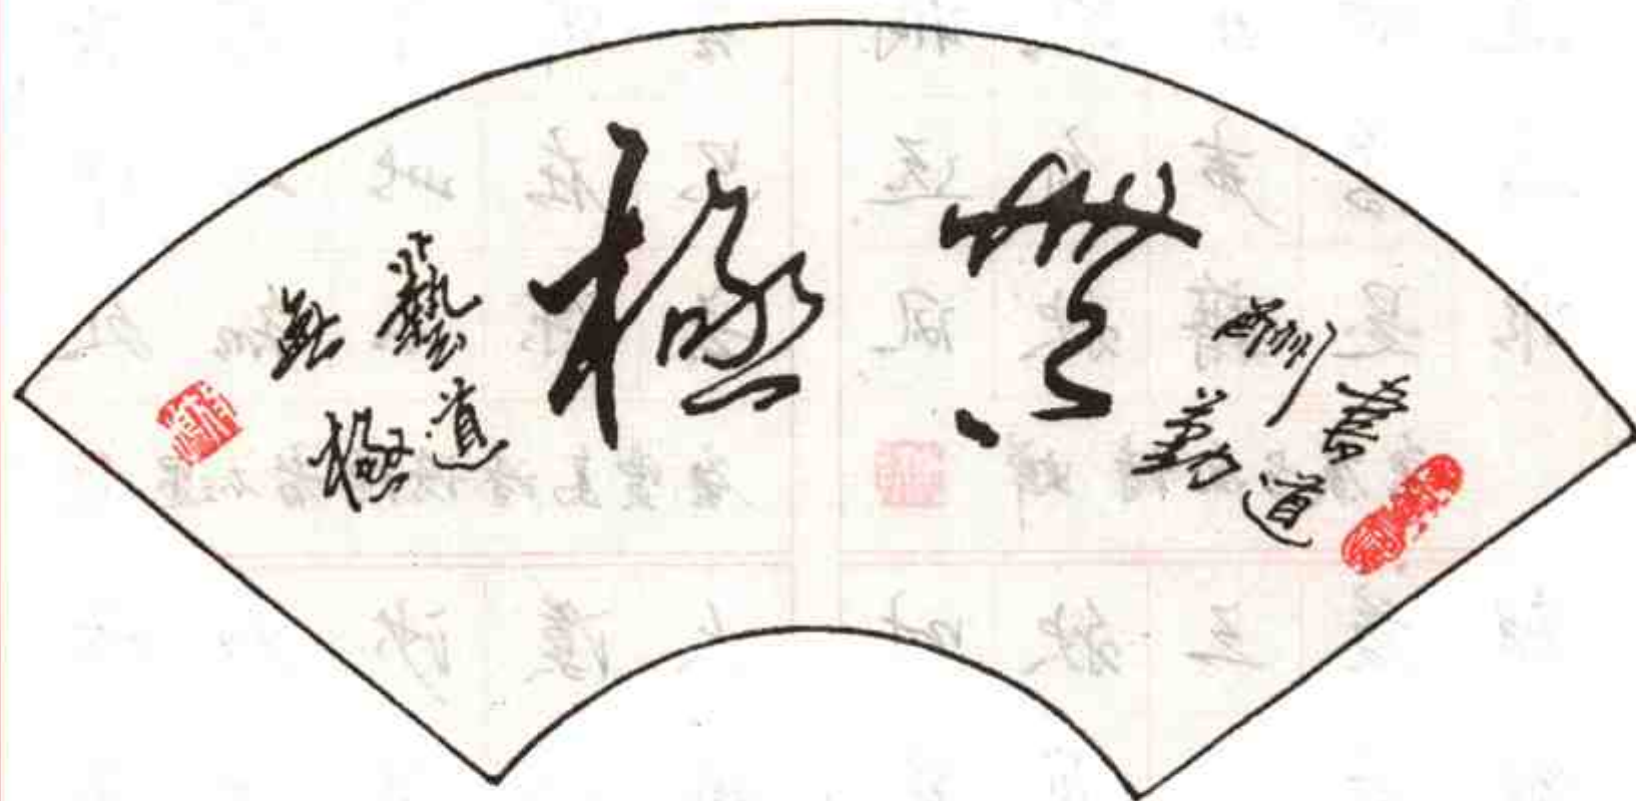 書道
酬勤
無極
藝道
無極